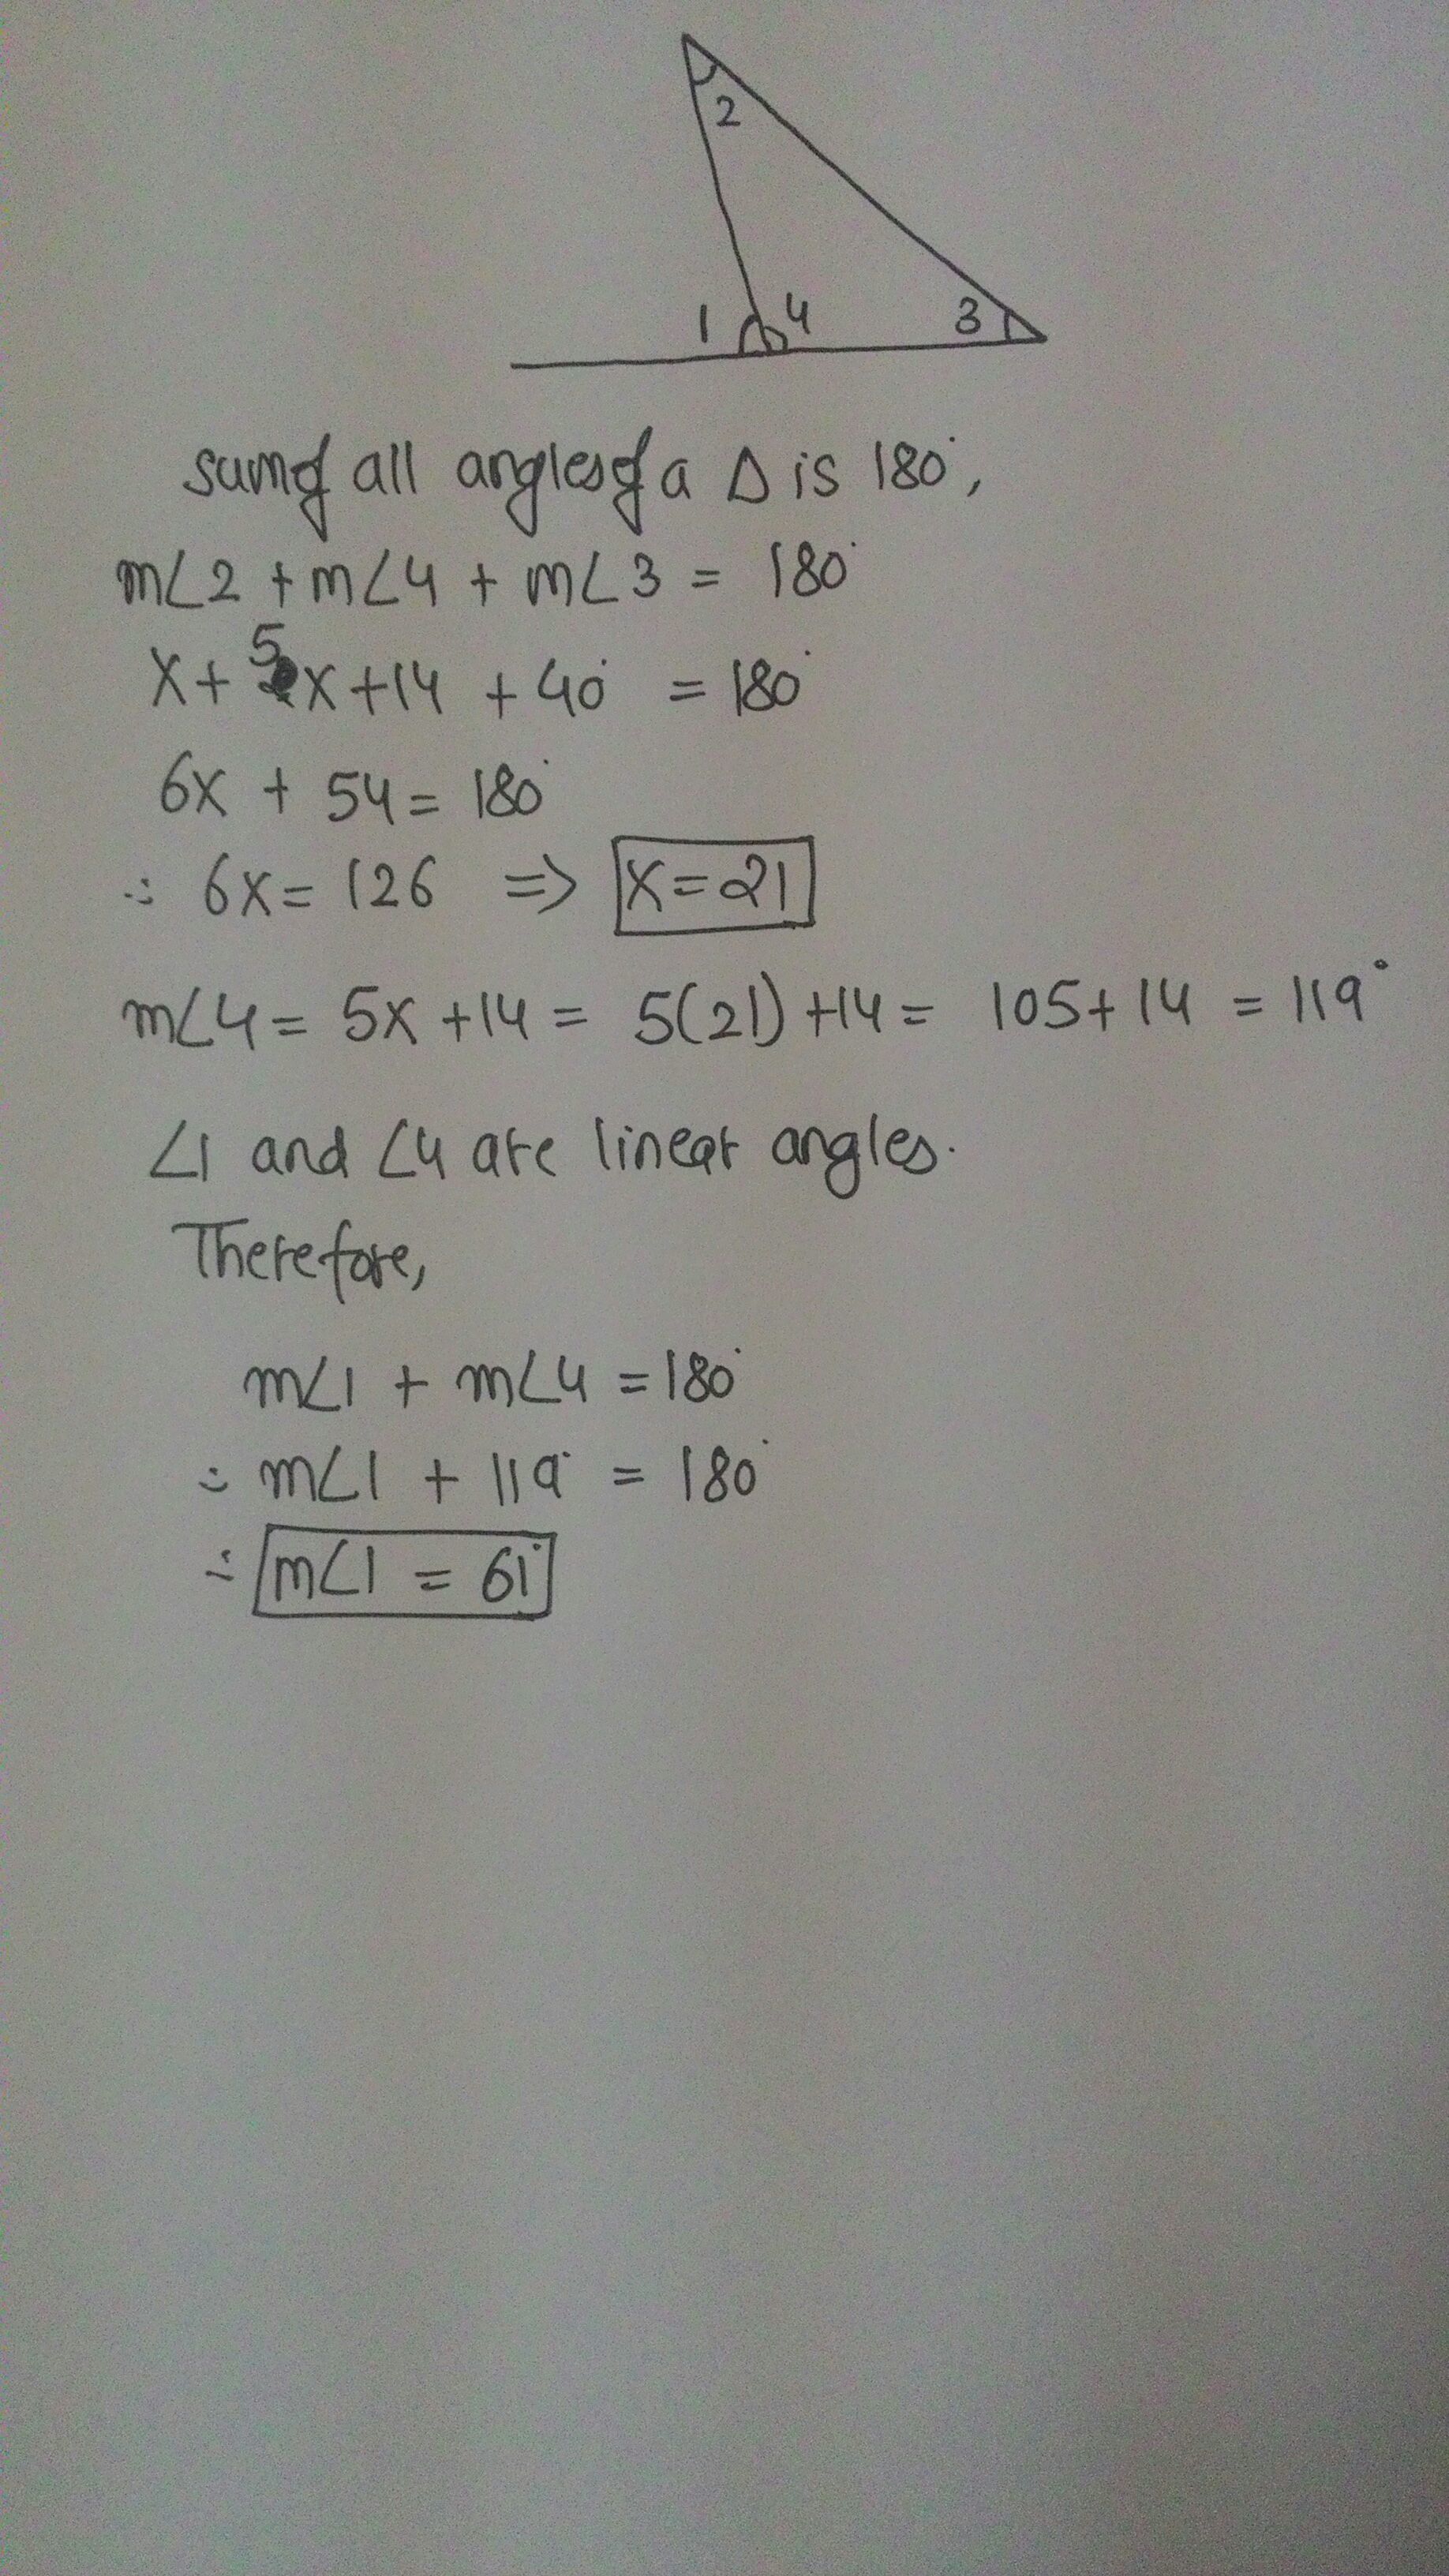 2
1 4 3
sum of all angles of a Δ is 180°,
m∠2 + m∠4 + m∠3 = 180°
x + 5x + 14 + 40° = 180°
6x + 54 = 180°
∴ 6x = 126 ⇒ x = 21
m∠4 = 5x + 14 = 5(21) + 14 = 105 + 14 = 119°
∠1 and ∠4 are linear angles.
Therefore,
m∠1 + m∠4 = 180°
∴ m∠1 + 119° = 180°
∴ m∠1 = 61°